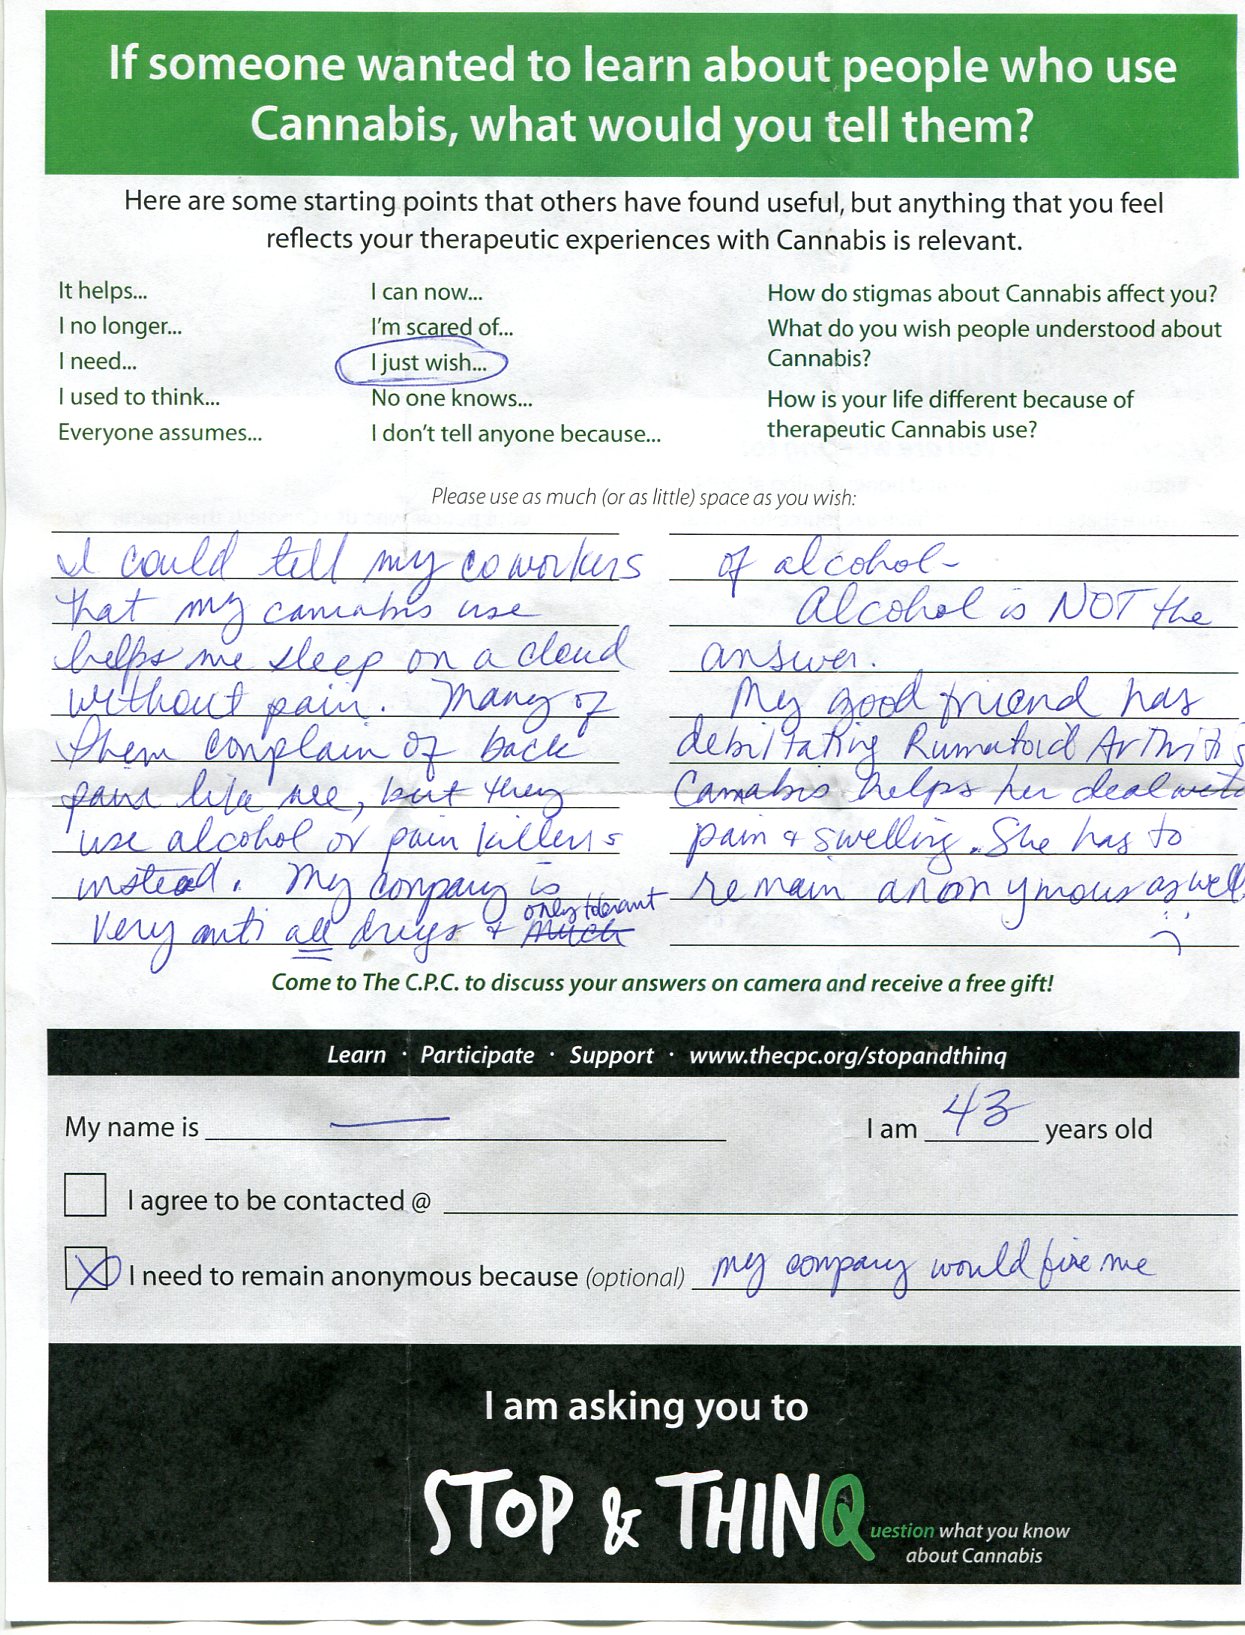 If someone wanted to learn about people who use
Cannabis, what would you tell them?
Here are some starting points that others have found useful, but anything that you feel
reflects your therapeutic experiences with Cannabis is relevant.
It helps...
I no longer...
I need...
I used to think...
Everyone assumes...
I can now...
I'm scared of...
I just wish...
No one knows...
I don't tell anyone because...
How do stigmas about Cannabis affect you?
What do you wish people understood about
Cannabis?
How is your life different because of
therapeutic Cannabis use?
Please use as much (or as little) space as you wish:
I could tell my coworkers
that my cannabis use
helps me sleep on a cloud
without pain. Many of
them complain of back
pain like me, but they
use alcohol or pain killers
instead. My company is
very anti all drugs + only tolerant
of alcohol-
Alcohol is NOT the
answer.
My good friend has
debiltating Rumatoid Arthritis
Cannabis helps her deal with
pain + swelling. She has to
remain anonymous as well
:(
Come to The C.P.C. to discuss your answers on camera and receive a free gift!
Learn · Participate · Support · www.thecpc.org/stopandthinq
My name is —
I am 43 years old
I agree to be contacted @
X I need to remain anonymous because (optional) my company would fire me
I am asking you to
STOP & THINQ
uestion what you know
about Cannabis